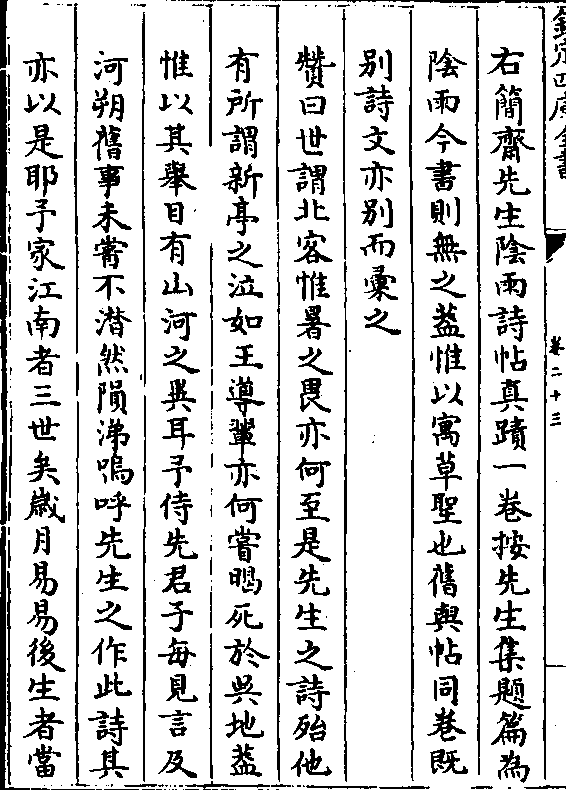 欽定四庫全書
卷二十三
右簡齋先生陰雨詩帖真蹟一卷按先生集題篇為
陰雨今書則無之葢惟以寓草聖也舊與帖同卷既
别詩文亦别而彚之
贊曰世謂北客惟暑之畏亦何至是先生之詩殆他
有所謂新亭之泣如王導軰亦何嘗暍死於吳地葢
惟以其舉目有山河之異耳予侍先君子每見言及
河朔舊事未嘗不潸然隕涕嗚呼先生之作此詩其
亦以是耶予家江南者三世矣歳月易易後生者當